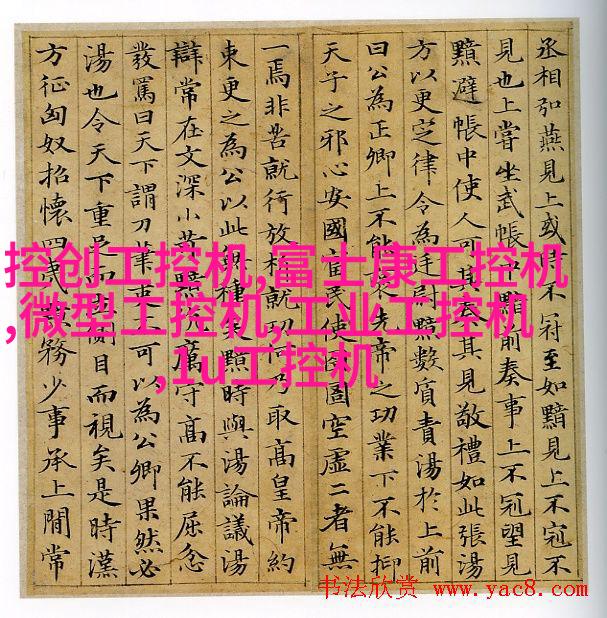 丞相弘燕見上或時不冠至如黯見上不冠不
見也上嘗坐武帳中黯前奏事上不冠望見
黯避帳中使人可其奏其見敬禮如此張湯
方以更定律令為廷尉黯數質責湯於上前
曰公為正卿上不能褒先帝之功業下不能抑
天子之邪心安國富民使囹圄空虛二者無
一焉非苦就行放析就功何乃取高皇帝約
束更之為公以此無種矣黯時與湯論議湯
辯常在文深小苛黯伉厲守高不能屈忿
發罵曰天下謂刀筆吏不可以為公卿果然必
湯也令天下重足而立側目而視矣是時漢
方征匈奴招懷四夷黯務少事承上間常
控创工控机,富士康工控机
,微型工控机,工业工控机
,1u工控机
书法欣赏 www.yac8.com